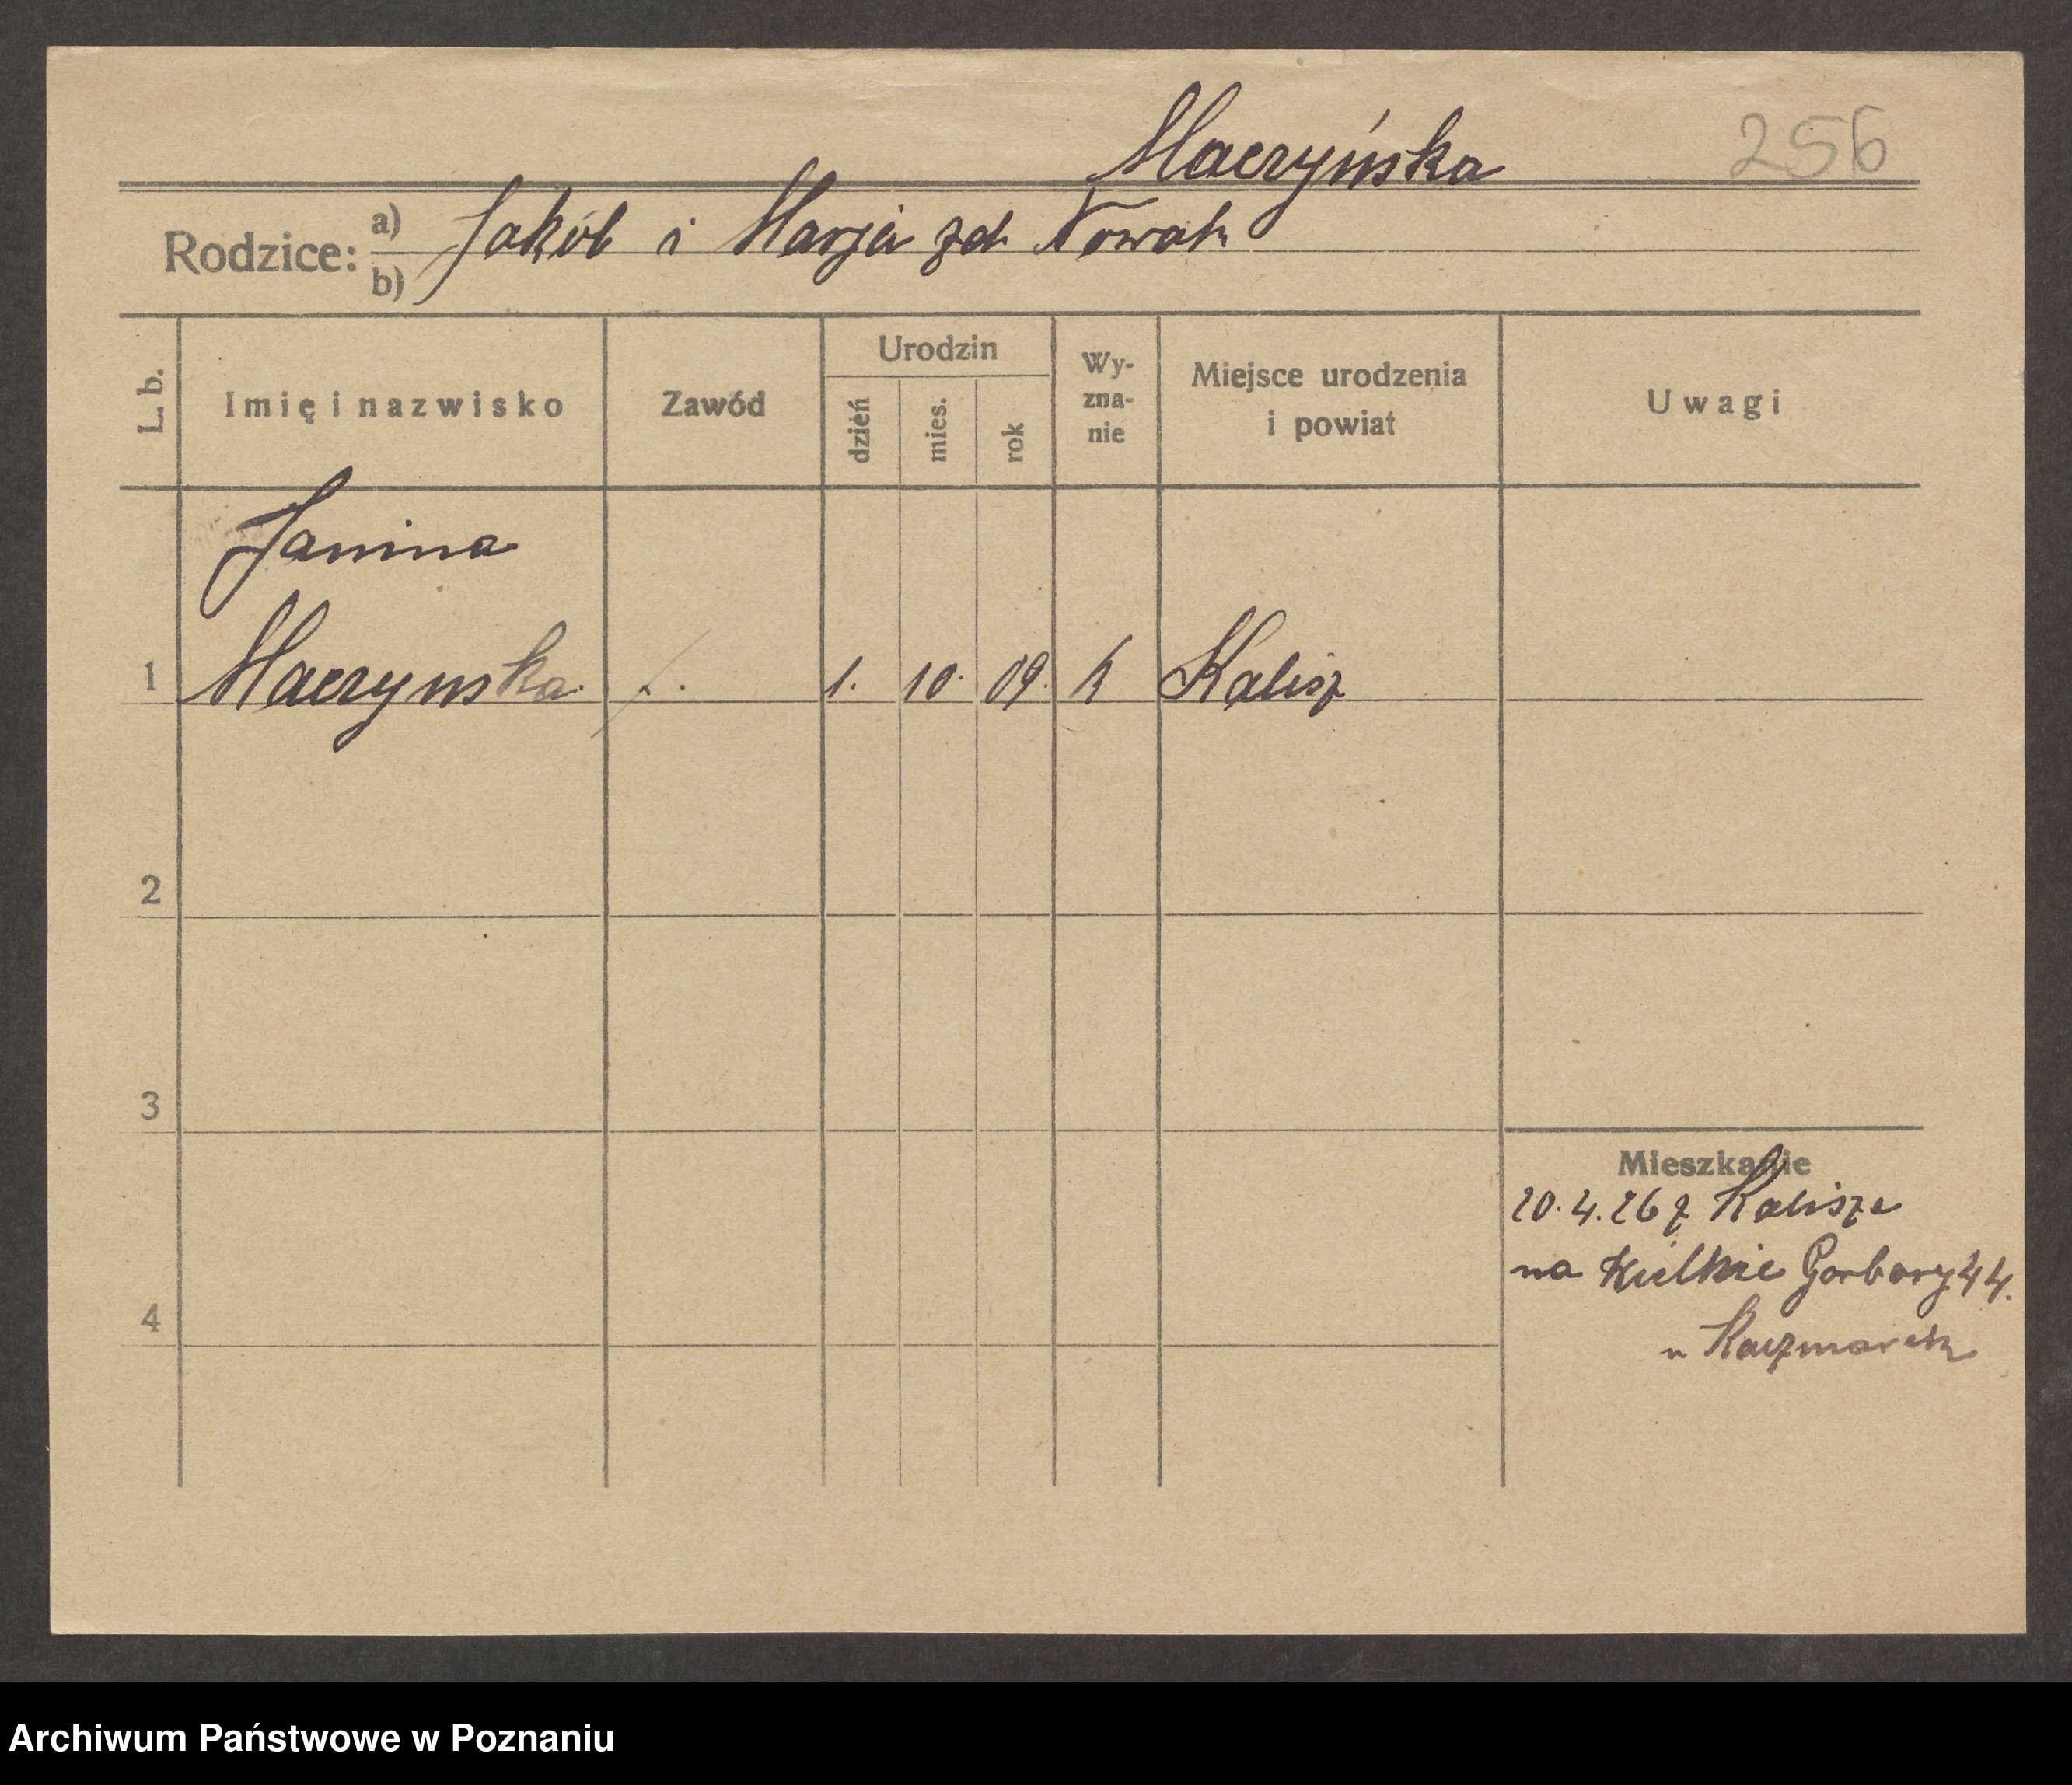 Maczyńska 256
Rodzice: a) Jakób i Marja zd. Nowak
b)
L. b. Imię i nazwisko Zawód Urodzin dzień mies. rok Wy-zna-nie Miejsce urodzenia i powiat Uwagi
Janina
1 Maczynska. 1. 10. 09. k Kalisz
2
3
Mieszkanie
20.4.26 z Kalisza
na Wielkie Garbary 44.
4
u Kaczmarek
Archiwum Państwowe w Poznaniu